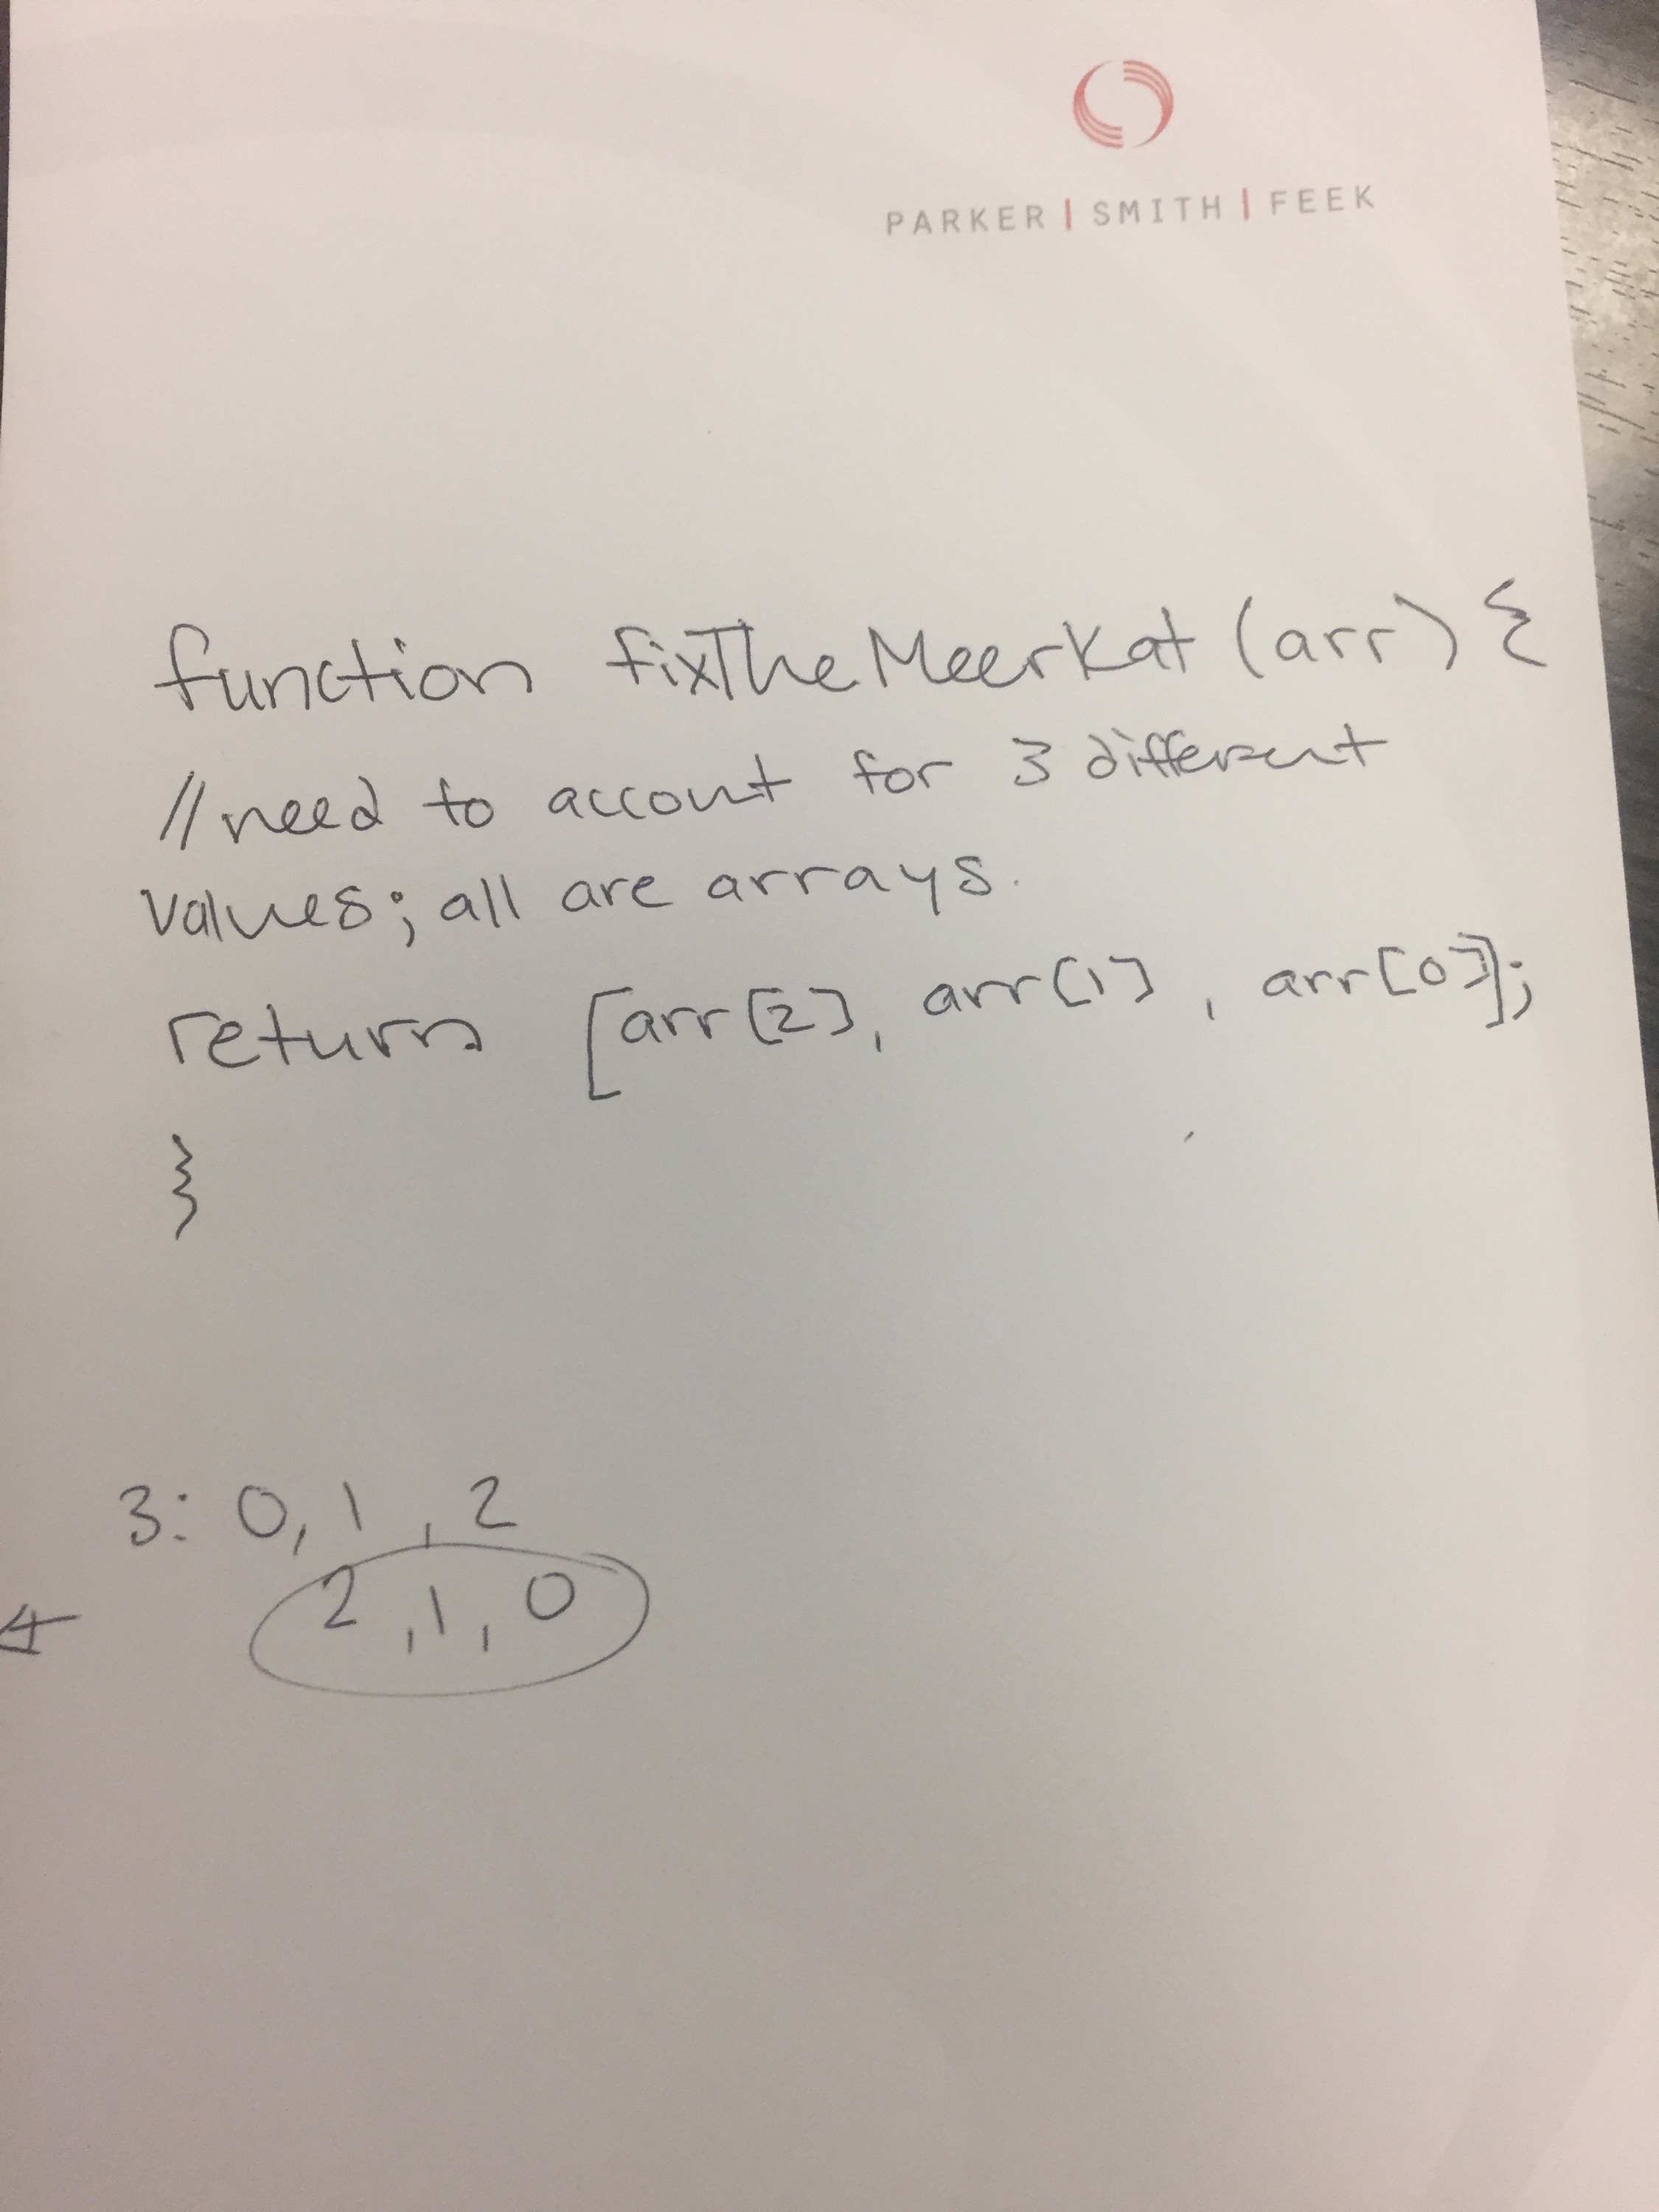 PARKER | SMITH | FEEK
function fixTheMeerkat (arr) {
//need to account for 3 different
values; all are arrays.
return [arr[2], arr[1], arr[0]];
}
3: 0, 1, 2
2, 1, 0